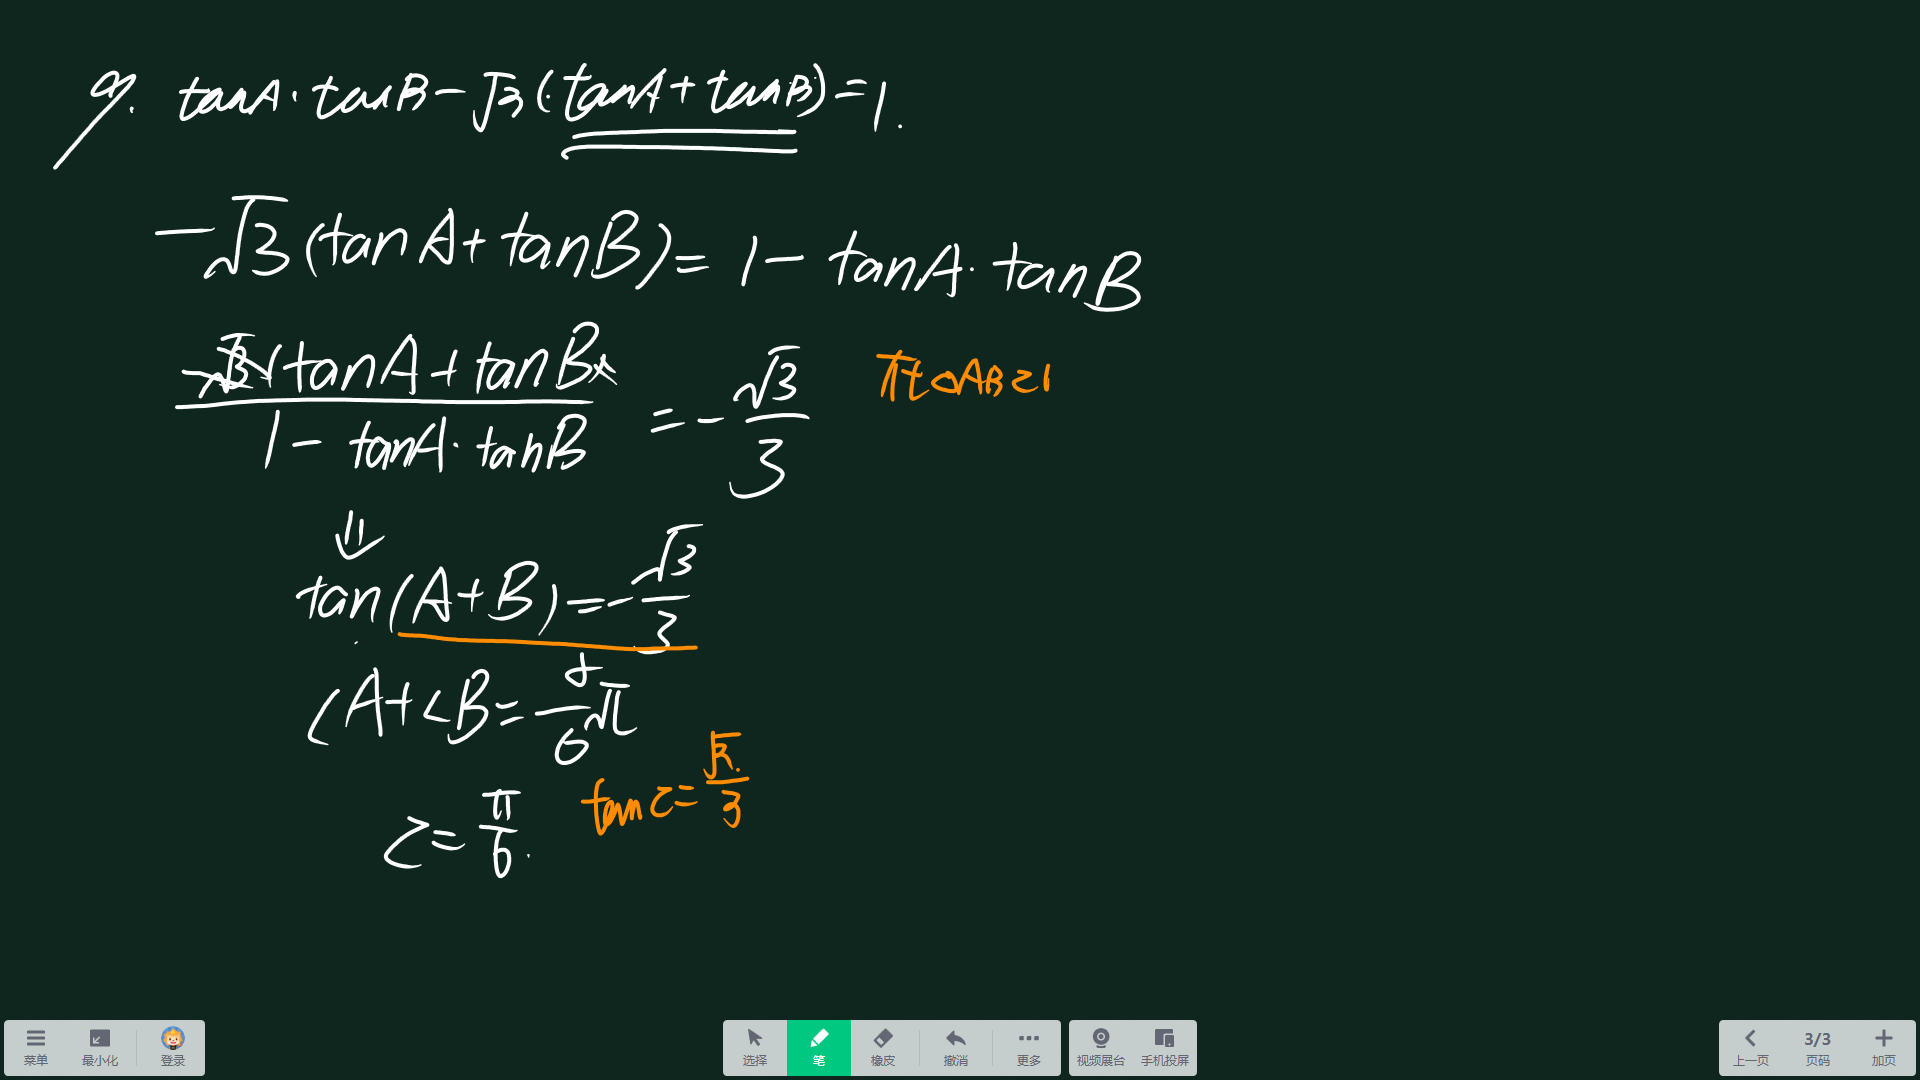 9. tanA·tanB-√3(tanA+tanB)=1.
-√3(tanA+tanB)=1-tanA·tanB
tanA+tanB / 1-tanA·tanB = -√3/3
在△ABC中
⇓
tan(A+B)=-√3/3
∠A+∠B=5/6π
C=π/6.
tanC=√3/3
菜单 最小化 登录 选择 笔 橡皮 撤消 更多 视频展台 手机投屏 上一页 3/3 页码 加页